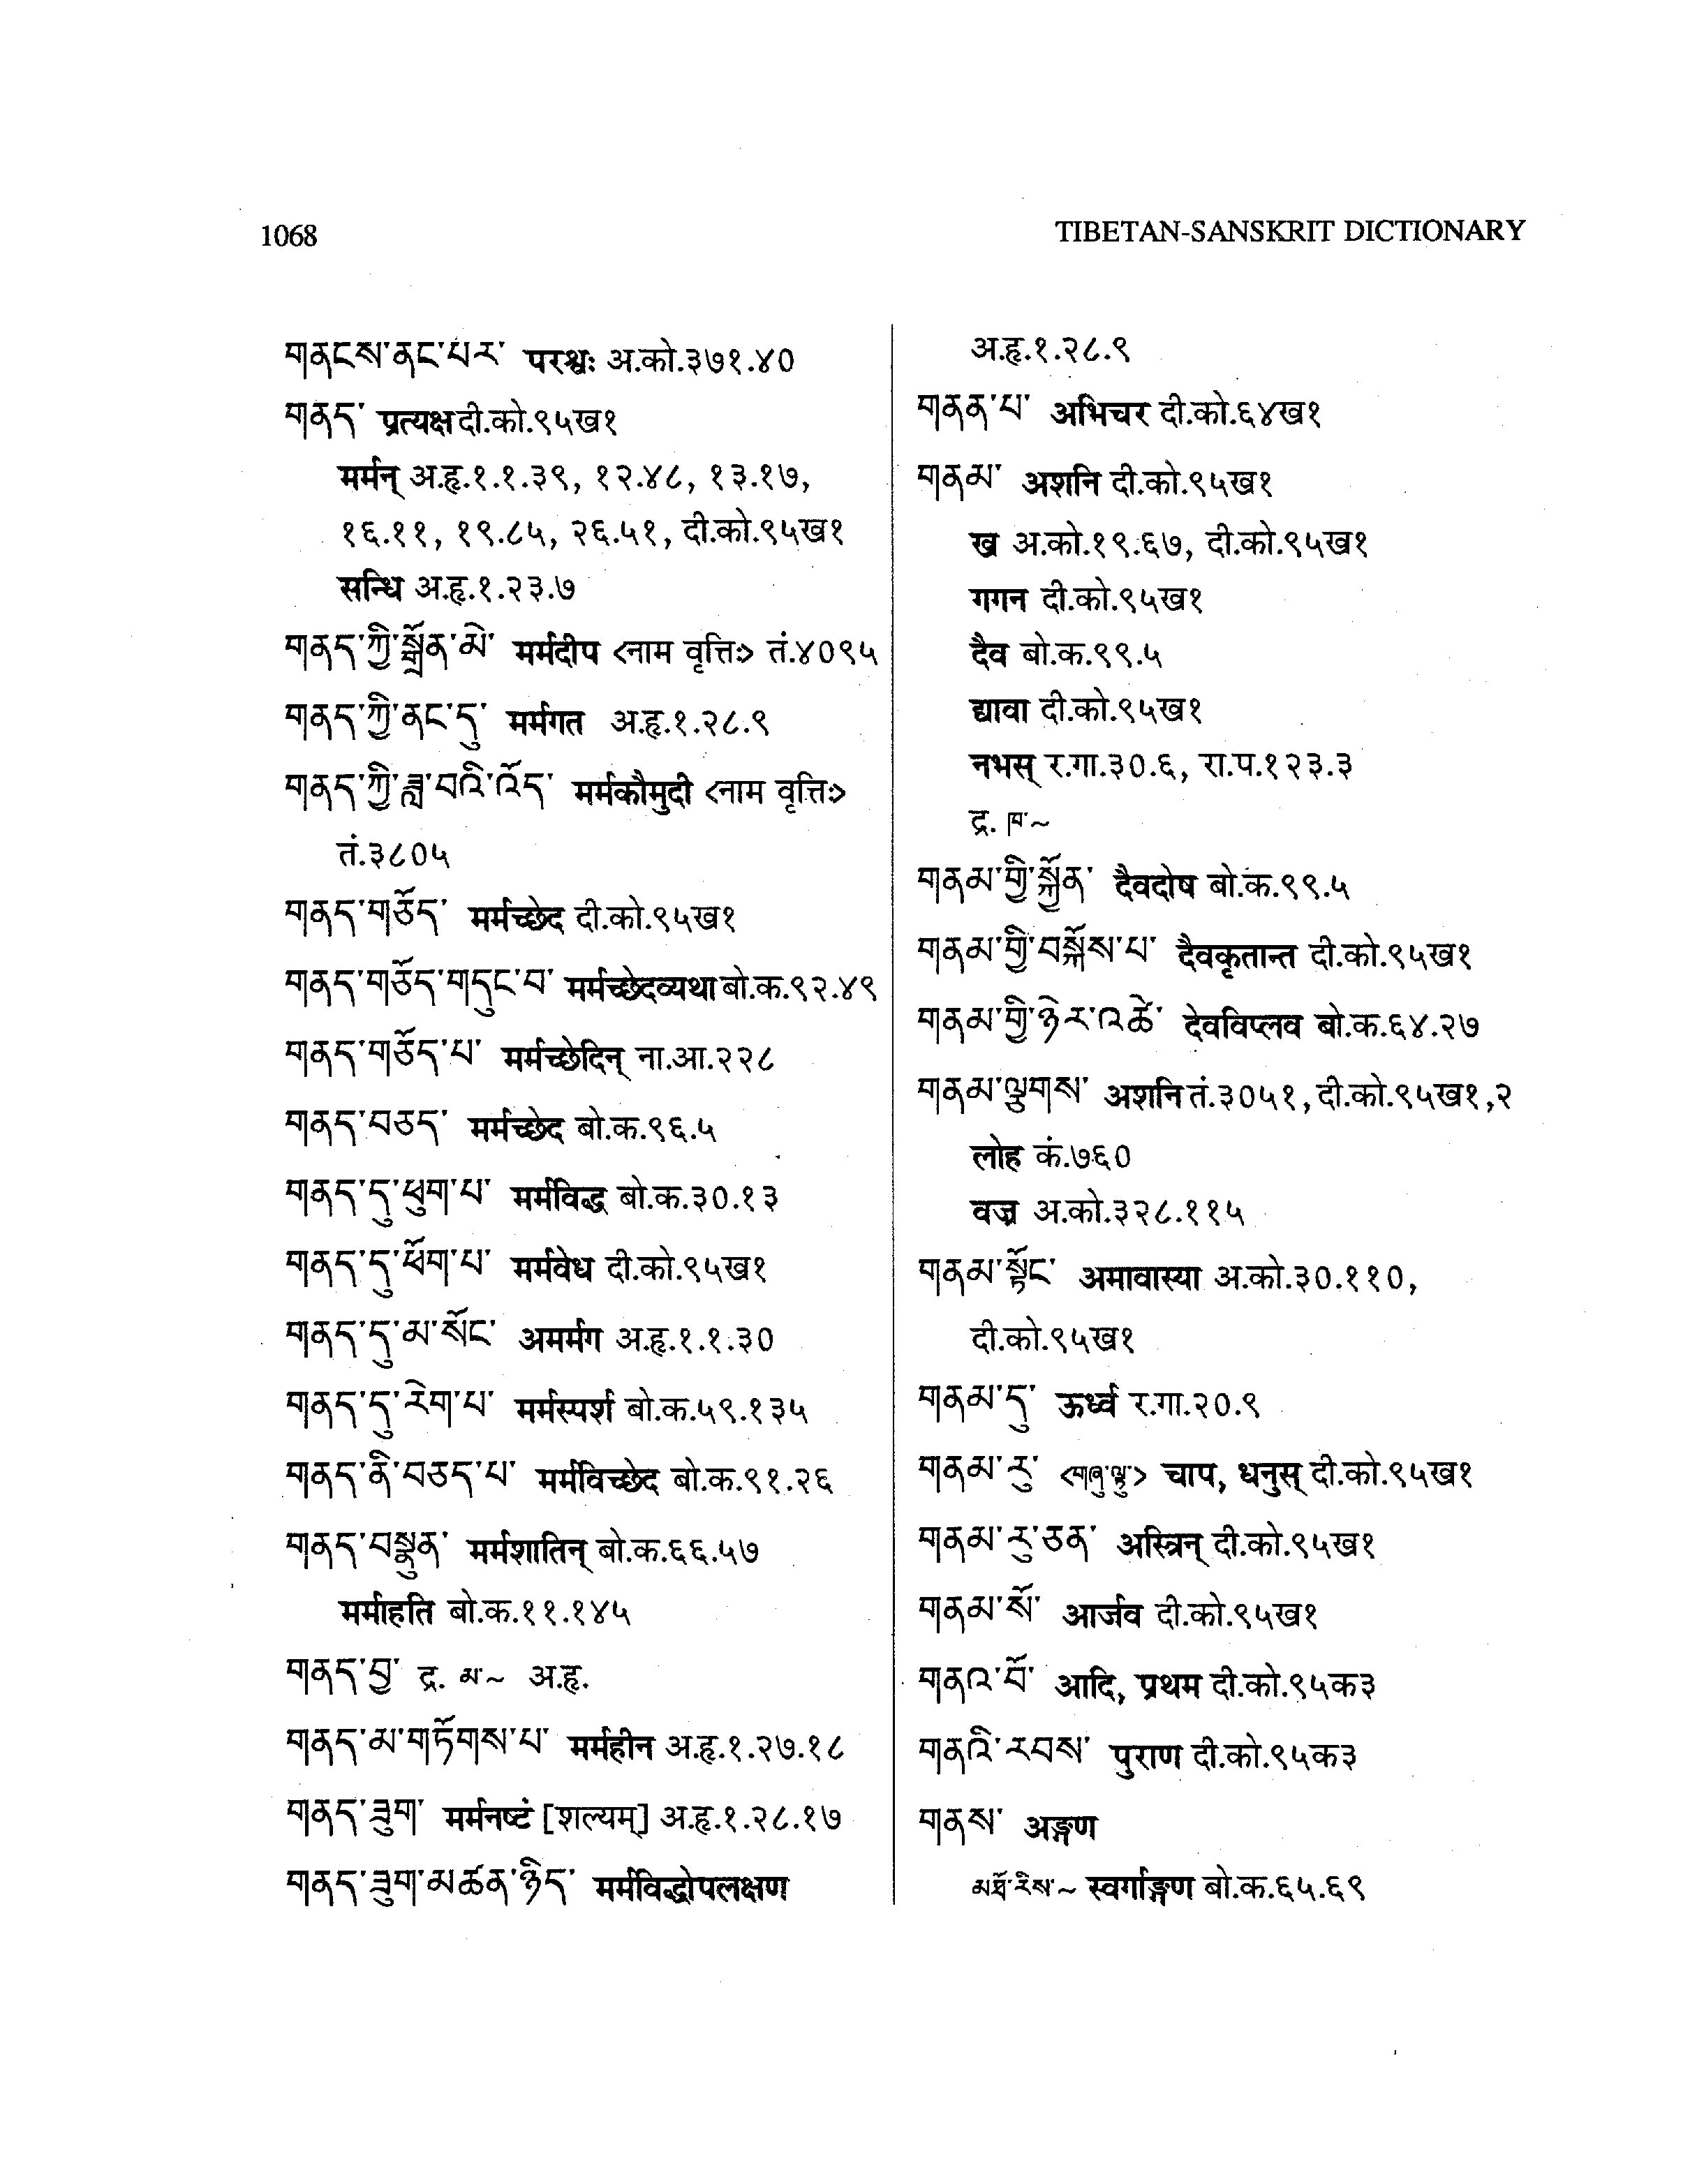 1068
TIBETAN-SANSKRIT DICTIONARY
གནངས་ནང་པར་ परश्वः अ.को.३७१.४०
གནད་ प्रत्यक्ष दी.को.९५ख१
मर्मन् अ.हृ.१.१.३९, १२.४८, १३.१७,
१६.११, १९.८५, २६.५१, दी.को.९५ख१
सन्धि अ.हृ.१.२३.७
གནད་ཀྱི་སྒྲོན་མེ་ मर्मदीप <नाम वृत्तिः> तं.४०९५
གནད་ཀྱི་ནང་དུ་ मर्मगत अ.हृ.१.२८.९
གནད་ཀྱི་ཟླ་བའི་འོད་ मर्मकौमुदी <नाम वृत्तिः>
तं.३८०५
གནད་གཅོད་ मर्मच्छेद दी.को.९५ख१
གནད་གཅོད་གདུང་བ་ मर्मच्छेदव्यथा बो.क.९२.४९
གནད་གཅོད་པ་ मर्मच्छेदिन् ना.आ.२२८
གནད་བཅད་ मर्मच्छेद बो.क.९६.५
གནད་དུ་ཕུག་པ་ मर्मविद्ध बो.क.३०.१३
གནད་དུ་ཕོག་པ་ मर्मवेध दी.को.९५ख१
གནད་དུ་མ་སོང་ अमर्मग अ.हृ.१.१.३०
གནད་དུ་རེག་པ་ मर्मस्पर्श बो.क.५९.१३५
གནད་ནི་བཅད་པ་ मर्मविच्छेद बो.क.९१.२६
གནད་བསྣུན་ मर्मशातिन् बो.क.६६.५७
मर्माहति बो.क.११.१४५
གནད་བྱ་ द्र. མ་~ अ.हृ.
གནད་མ་གཏོགས་པ་ मर्महीन अ.हृ.१.२७.१८
གནད་ཟུག་ मर्मनष्टं [शल्यम्] अ.हृ.१.२८.१७
གནད་ཟུག་མཚན་ཉིད་ मर्मविद्धोपलक्षण
अ.हृ.१.२८.९
གནན་པ་ अभिचर दी.को.६४ख१
གནམ་ अशनि दी.को.९५ख१
ख अ.को.१९.६७, दी.को.९५ख१
गगन दी.को.९५ख१
दैव बो.क.९९.५
द्यावा दी.को.९५ख१
नभस् र.गा.३०.६, रा.प.१२३.३
द्र. ཁ་~
གནམ་གྱི་སྐྱོན་ दैवदोष बो.क.९९.५
གནམ་གྱི་བསྐོས་པ་ दैवकृतान्त दी.को.९५ख१
གནམ་གྱི་ཉེར་འཚེ་ देवविप्लव बो.क.६४.२७
གནམ་ལྕགས་ अशनि तं.३०५१, दी.को.९५ख१,२
लोह कं.७६०
वज्र अ.को.३२८.११५
གནམ་སྟོང་ अमावास्या अ.को.३०.११०,
दी.को.९५ख१
གནམ་དུ་ ऊर्ध्व र.गा.२०.९
གནམ་རུ་ <གཞུ་ལྟ་བུ་> चाप, धनुस् दी.को.९५ख१
གནམ་རུ་ཅན་ अस्त्रिन् दी.को.९५ख१
གནམ་སོ་ आर्जव दी.को.९५ख१
གནའ་བོ་ आदि, प्रथम दी.को.९५क३
གནའི་རབས་ पुराण दी.को.९५क३
གནས་ अङ्गण
མཐོ་རིས་~ स्वर्गाङ्गण बो.क.६५.६९